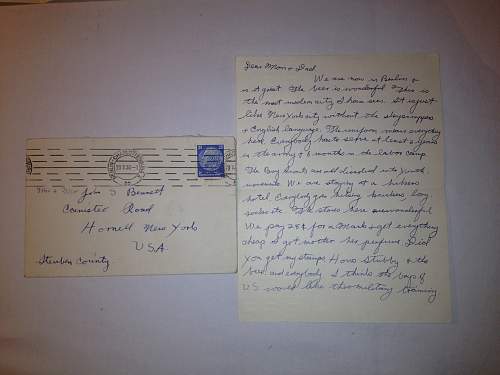 Mr + Mrs John S Bennett
Canisteo Road
Hornell New York
U.S.A.
Steuben County
Dear Mom + Dad
We are now in Berlin &
is it great. The beer is wonderful. This is
the most modern city I have seen. It is just
like New York city without the skyscrapers
& English language. The uniform means everything
here. Everybody has to serve at least 2 years
in the army & 6 months in the labor camp.
The Boy Scouts are all dissolved into Youth
movements We are staying at a
hotel. Everybody goes hiking
The stores here are wonderful
We pay 28¢ for a Mark & get everything
cheap. I got mother her perfume. Did
you get my stamps. How's Stubby & the
bird and everybody. I think the boys of
U.S. would like this military training.